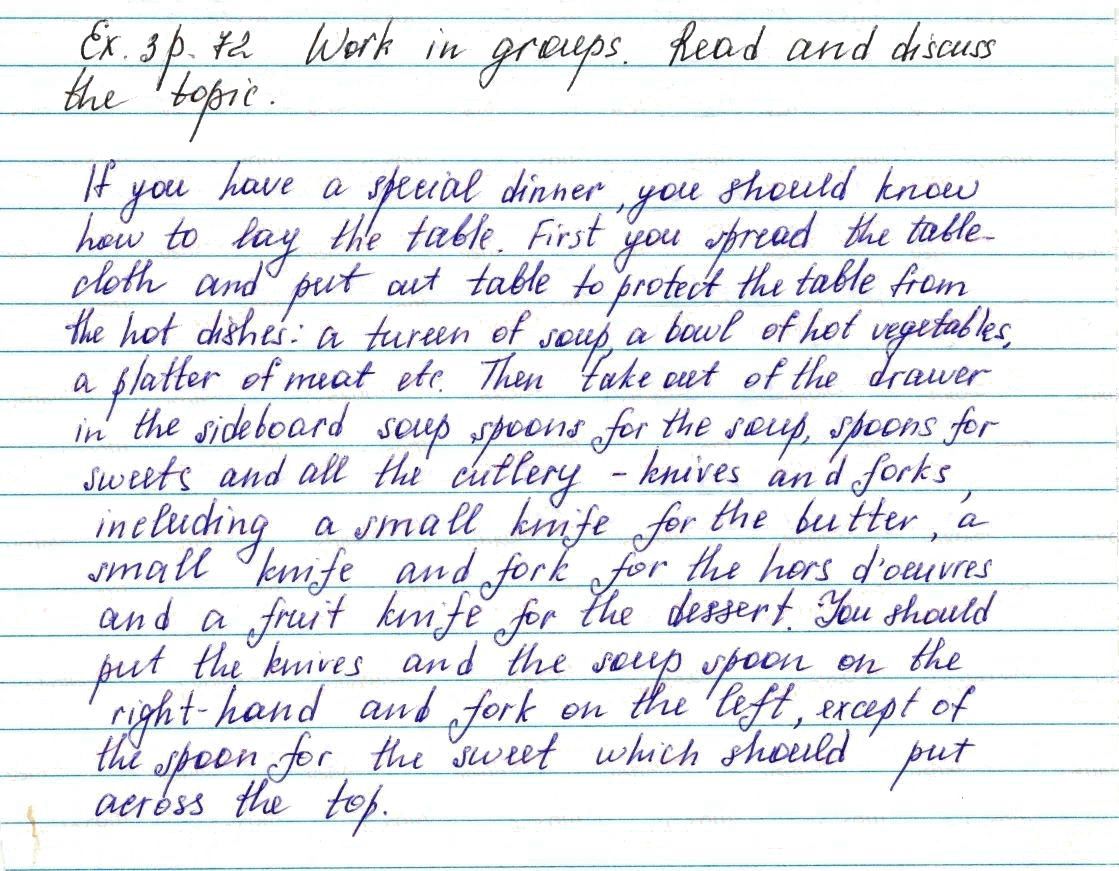 Ex. 3 p. 72 Work in groups. Read and discuss
the topic.
If you have a special dinner, you should know
how to lay the table. First you spread the table-
cloth and put out table to protect the table from
the hot dishes: a tureen of soup, a bowl of hot vegetables,
a platter of meat etc. Then take out of the drawer
in the sideboard soup spoons for the soup, spoons for
sweets and all the cutlery - knives and forks,
including a small knife for the butter, a
small knife and fork for the hors d'oeuvres
and a fruit knife for the dessert. You should
put the knives and the soup spoon on the
right-hand and fork on the left, except of
the spoon for the sweet which should put
across the top.